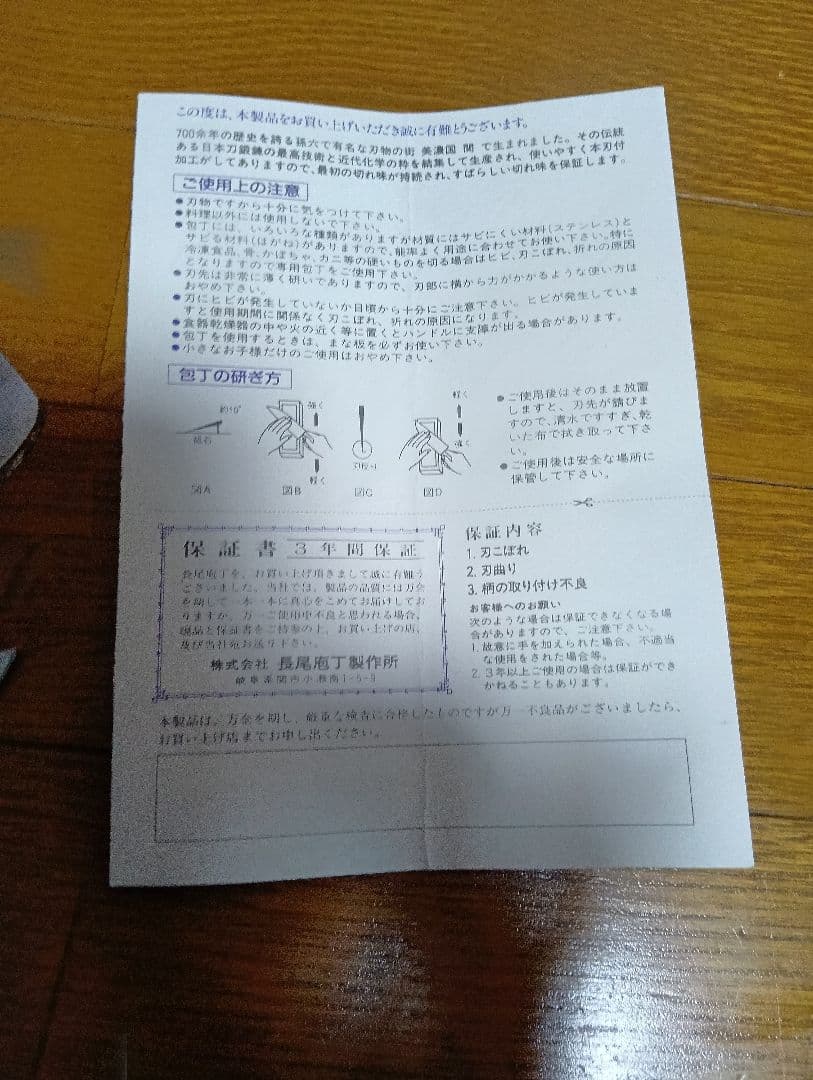 この度は、本製品をお買い上げいただき誠に有難とうございます。
700余年の歴史を誇る孫六で有名な刃物の街 美濃国 関 で生まれました。その伝統
ある日本刀鍛錬の最高技術と近代化学の粋を結集して生産され、使いやすく本刃付
加工がしてありますので、最初の切れ味が持続され、すばらしい切れ味を保証します。
ご使用上の注意
●刃物ですから十分に気をつけて下さい。
●料理以外には使用しないで下さい。
●包丁には、いろいろな種類がありますが材質にはサビにくい材料(ステンレス)と
サビる材料(はがね)がありますので、能率よく用途に合わせてお使い下さい。特に
冷凍食品、骨、かぼちゃ、カニ等の硬いものを切る場合はヒビ、刃こぼれ、折れの原因
となりますので専用包丁をご使用下さい。
●刃先は非常に薄く研いでありますので、刃部に横から力がかかるような使い方は
おやめ下さい。
●刃にヒビが発生していないか日頃から十分にご注意下さい。ヒビが発生していま
すと使用期間に関係なく刃こぼれ、折れの原因になります。
●食器乾燥器の中や火の近く等に置くとハンドルに支障が出る場合があります。
●包丁を使用するときは、まな板を必ずお使い下さい。
●小さなお子様だけのご使用はおやめ下さい。
包丁の研ぎ方
約10°
砥石
図A
強く
軽く
図B
刃返り
図C
軽く
強く
図D
●ご使用後はそのまま放置
しますと、刃先が錆びま
すので、清水ですすぎ、乾
いた布で拭き取って下さ
い。
●ご使用後は安全な場所に
保管して下さい。
保証書 3年間保証
長尾庖丁を、お買い上げ頂きまして誠に有難う
ございました。当社では、製品の品質には万全
を期して一本一本に真心をこめてお届けしてお
りますが、万一ご使用中不良と思われる場合、
現品と保証書をご持参の上、お買い上げの店、
及び当社宛お送り下さい。
株式会社 長尾庖丁製作所
岐阜県関市小瀬南1-5-9
保証内容
1. 刃こぼれ
2. 刃曲り
3. 柄の取り付け不良
お客様へのお願い
次のような場合は保証できなくなる場
合がありますので、ご注意下さい。
1. 故意に手を加えられた場合、不適当
な使用をされた場合等。
2. 3年以上ご使用の場合は保証ができ
かねることもあります。
本製品は、万全を期し、厳重な検査に合格したものですが万一不良品がございましたら、
お買い上げ店までお申し出ください。